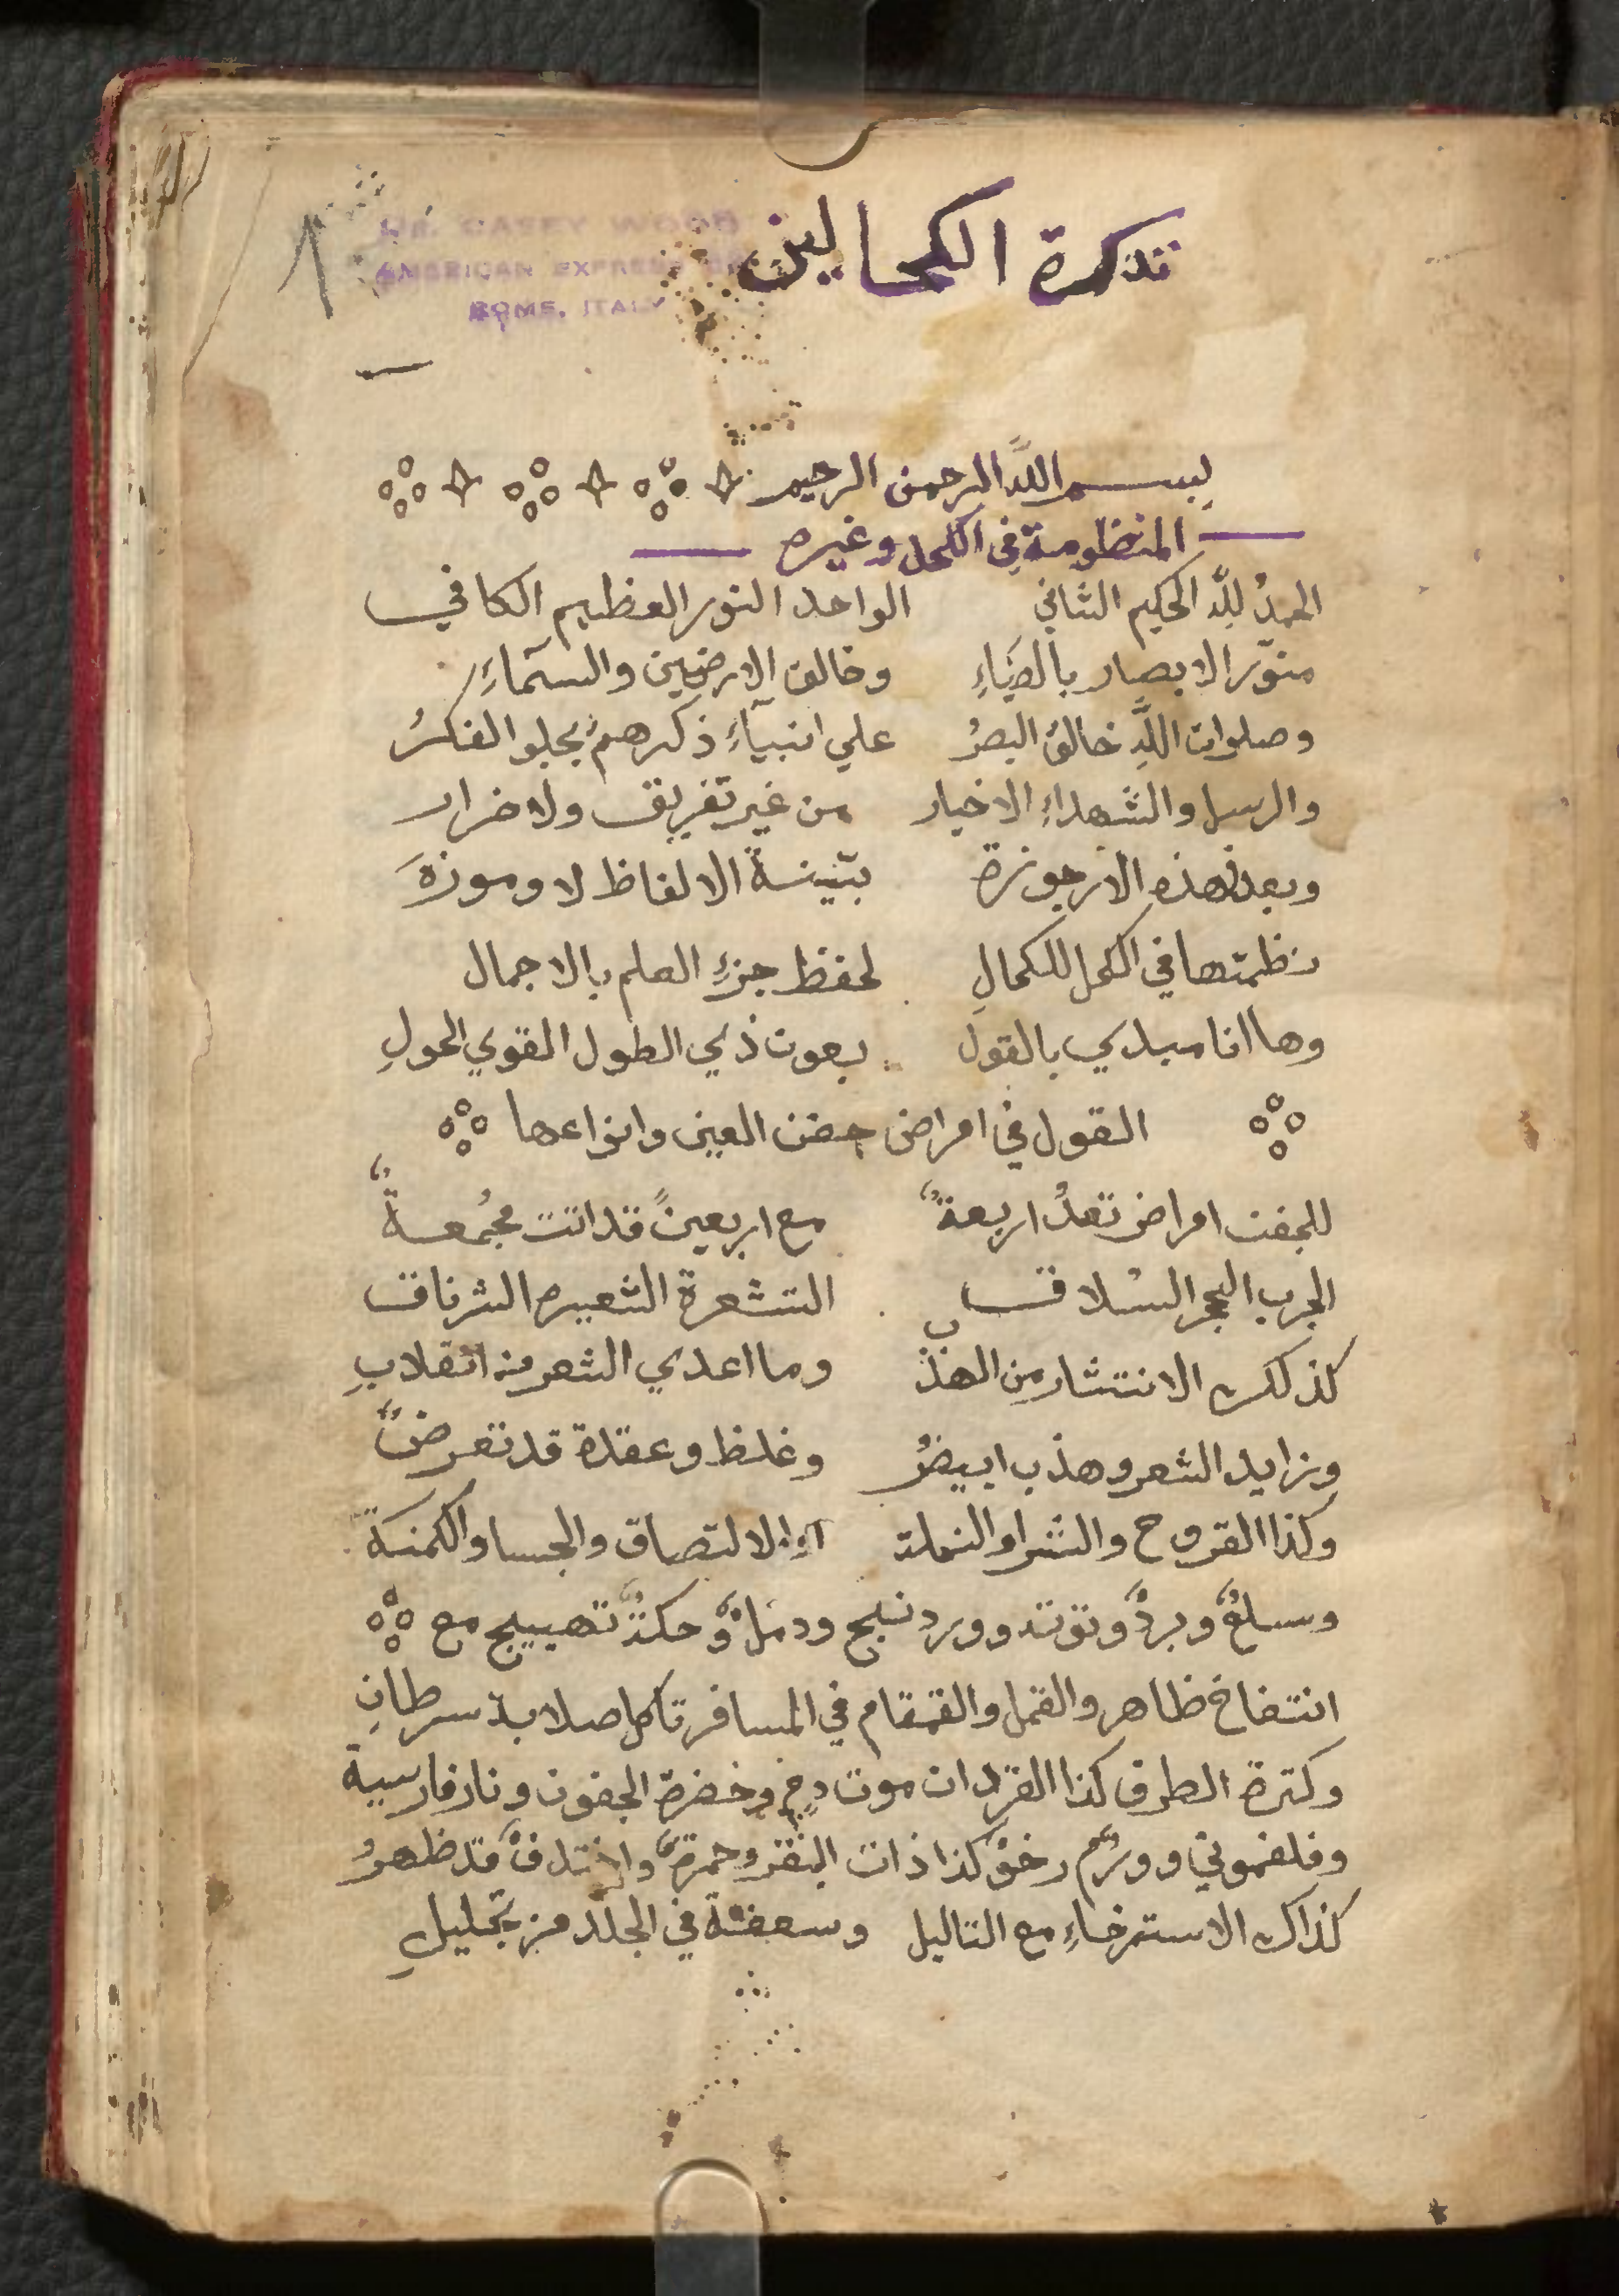 تذكرة الكحالين
DR. CASEY WOOD
AMERICAN EXPRESS
ROME, ITALY
بسم اللّه الرحمن الرحيم
المنظومة في الكحل وغيره
الحمدُ للّهِ الحكيم الشافي الواحد النور العظيم الكافي
منوّر الابصار بالضياءِ وخالق الارضين والسمآءِ
وصلوات اللّهِ خالقُ البصرُ علي انبيآءِ ذكرهمُ يجلو الفكرُ
والرسل والشهداءِ الاخيار من غير تفريق ولا ضرار
وبعد فهذه الارجوزة بيّنةً الالفاظ لا وموزةَ
نظمتها في الكحل للكحالِ لحفظ جزءِ العلم بالاجمال
وها انا مبدي بالقول بعون ذي الطول القوي الحولِ
القول في امراض جفن العين وانواعها
للجفن امراض تعدُ اربعةٌ مع اربعينً قد اتت مجُمعةً
الجرب البحر السُلاق الشعرة الشعيره الشرناق
كذلك الانتشار مِن الهذب وما اعدي الشعر من انقلابِ
وزايد الشعر وهذب ابيضُ وغلظ وعقدة قد تعرضُ
وكذا القروح والشرا والنملة الالتصاق والجسا والكمنةً
وسلعٌ وبردٌ وتوتة ووردنيج ودملٌ وحكةٌ تهييج مع
انتفاخ ظاهر والقمل والقمقام في المسافر تاكل صلابة سرطانِ
وكثرة الطرف كذا القردان موت دمٍ وخضرة الجفون ونار فارسية
وفلغموني وورمٌ رخوٌ كذا ذات النقر وحمرةٌ واختلافٌ قد ظهرُ
كذاك الاسترخاءِ مع الثاليل وسعفة في الجلد من تحليلِ